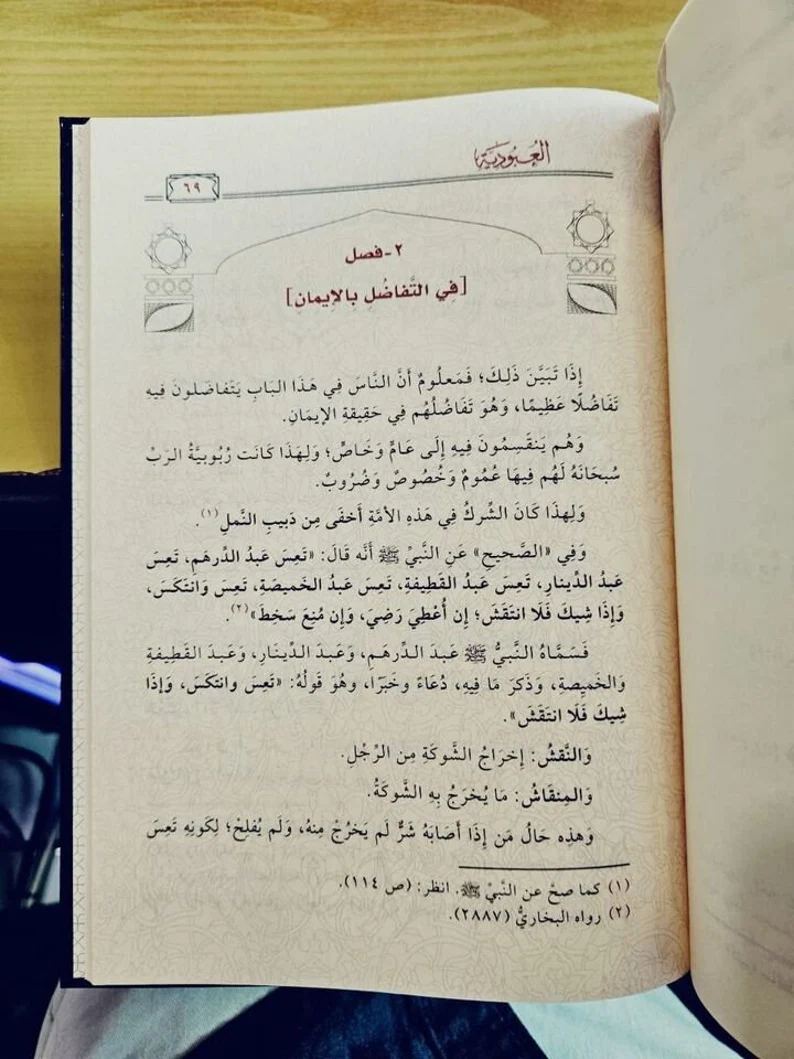 العُبُودِيَّة
٦٩
٢- فصل
[فِي التَّفَاضُلِ بِالإِيمَانِ]
إِذَا تَبَيَّنَ ذَلِكَ؛ فَمَعلُومٌ أَنَّ النَّاسَ فِي هَذَا البَابِ يَتَفَاضَلونَ فِيهِ
تَفَاضُلًا عَظِيمًا، وَهُوَ تَفَاضُلُهُم فِي حَقِيقةِ الإيمَانِ.
وَهُم يَنقَسِمُونَ فِيهِ إِلَى عَامٍّ وَخَاصٍّ؛ وَلِهَذَا كَانَت رُبُوبيَّةُ الرَبِّ
سُبحَانَهُ لَهُم فِيهَا عُمُومٌ وَخُصُوصٌ وَضُرُوبٌ.
وَلِهذَا كَانَ الشِّركُ فِي هَذهِ الأمَّةِ أَخفَى مِن دَبيبِ النَّملِ(١).
وَفِي «الصَّحيحِ» عَنِ النَّبيِّ ﷺ أَنَّه قَالَ: «تَعِسَ عَبدُ الدِّرهَمِ، تَعِسَ
عَبدُ الدِّينارِ، تَعِسَ عَبدُ القَطِيفةِ، تَعِسَ عَبدُ الخَميصَةِ، تَعِسَ وَانتَكَسَ،
وَإِذَا شِيكَ فَلَا انتَقَشَ؛ إِن أُعْطِيَ رَضِيَ، وَإِن مُنِعَ سَخِطَ»(٢).
فَسَمَّاهُ النَّبيُّ ﷺ عَبدَ الدِّرهَمِ، وَعَبدَ الدِّينَارِ، وَعَبدَ القَطِيفةِ
وَالخَمِيصةِ، وَذَكرَ مَا فِيهِ، دُعَاءً وخَبَرًا، وهُوَ قَولُهُ: «تَعِسَ وانتكَسَ، وَإذَا
شِيكَ فَلَا انتَقَشَ».
وَالنَّقشُ: إخرَاجُ الشَّوكَةِ مِن الرِّجْلِ.
وَالمِنقَاشُ: مَا يُخرَجُ بِهِ الشَّوكَةُ.
وَهذِه حَالُ مَن إِذَا أَصَابَهُ شَرٌّ لَم يَخرُجْ مِنهُ، وَلَم يُفلِحْ؛ لِكَونِهِ تَعِسَ
(١) كما صحَّ عن النَّبيِّ ﷺ. انظر: (ص ١١٤).
(٢) رواه البخاريُّ (٢٨٨٧).